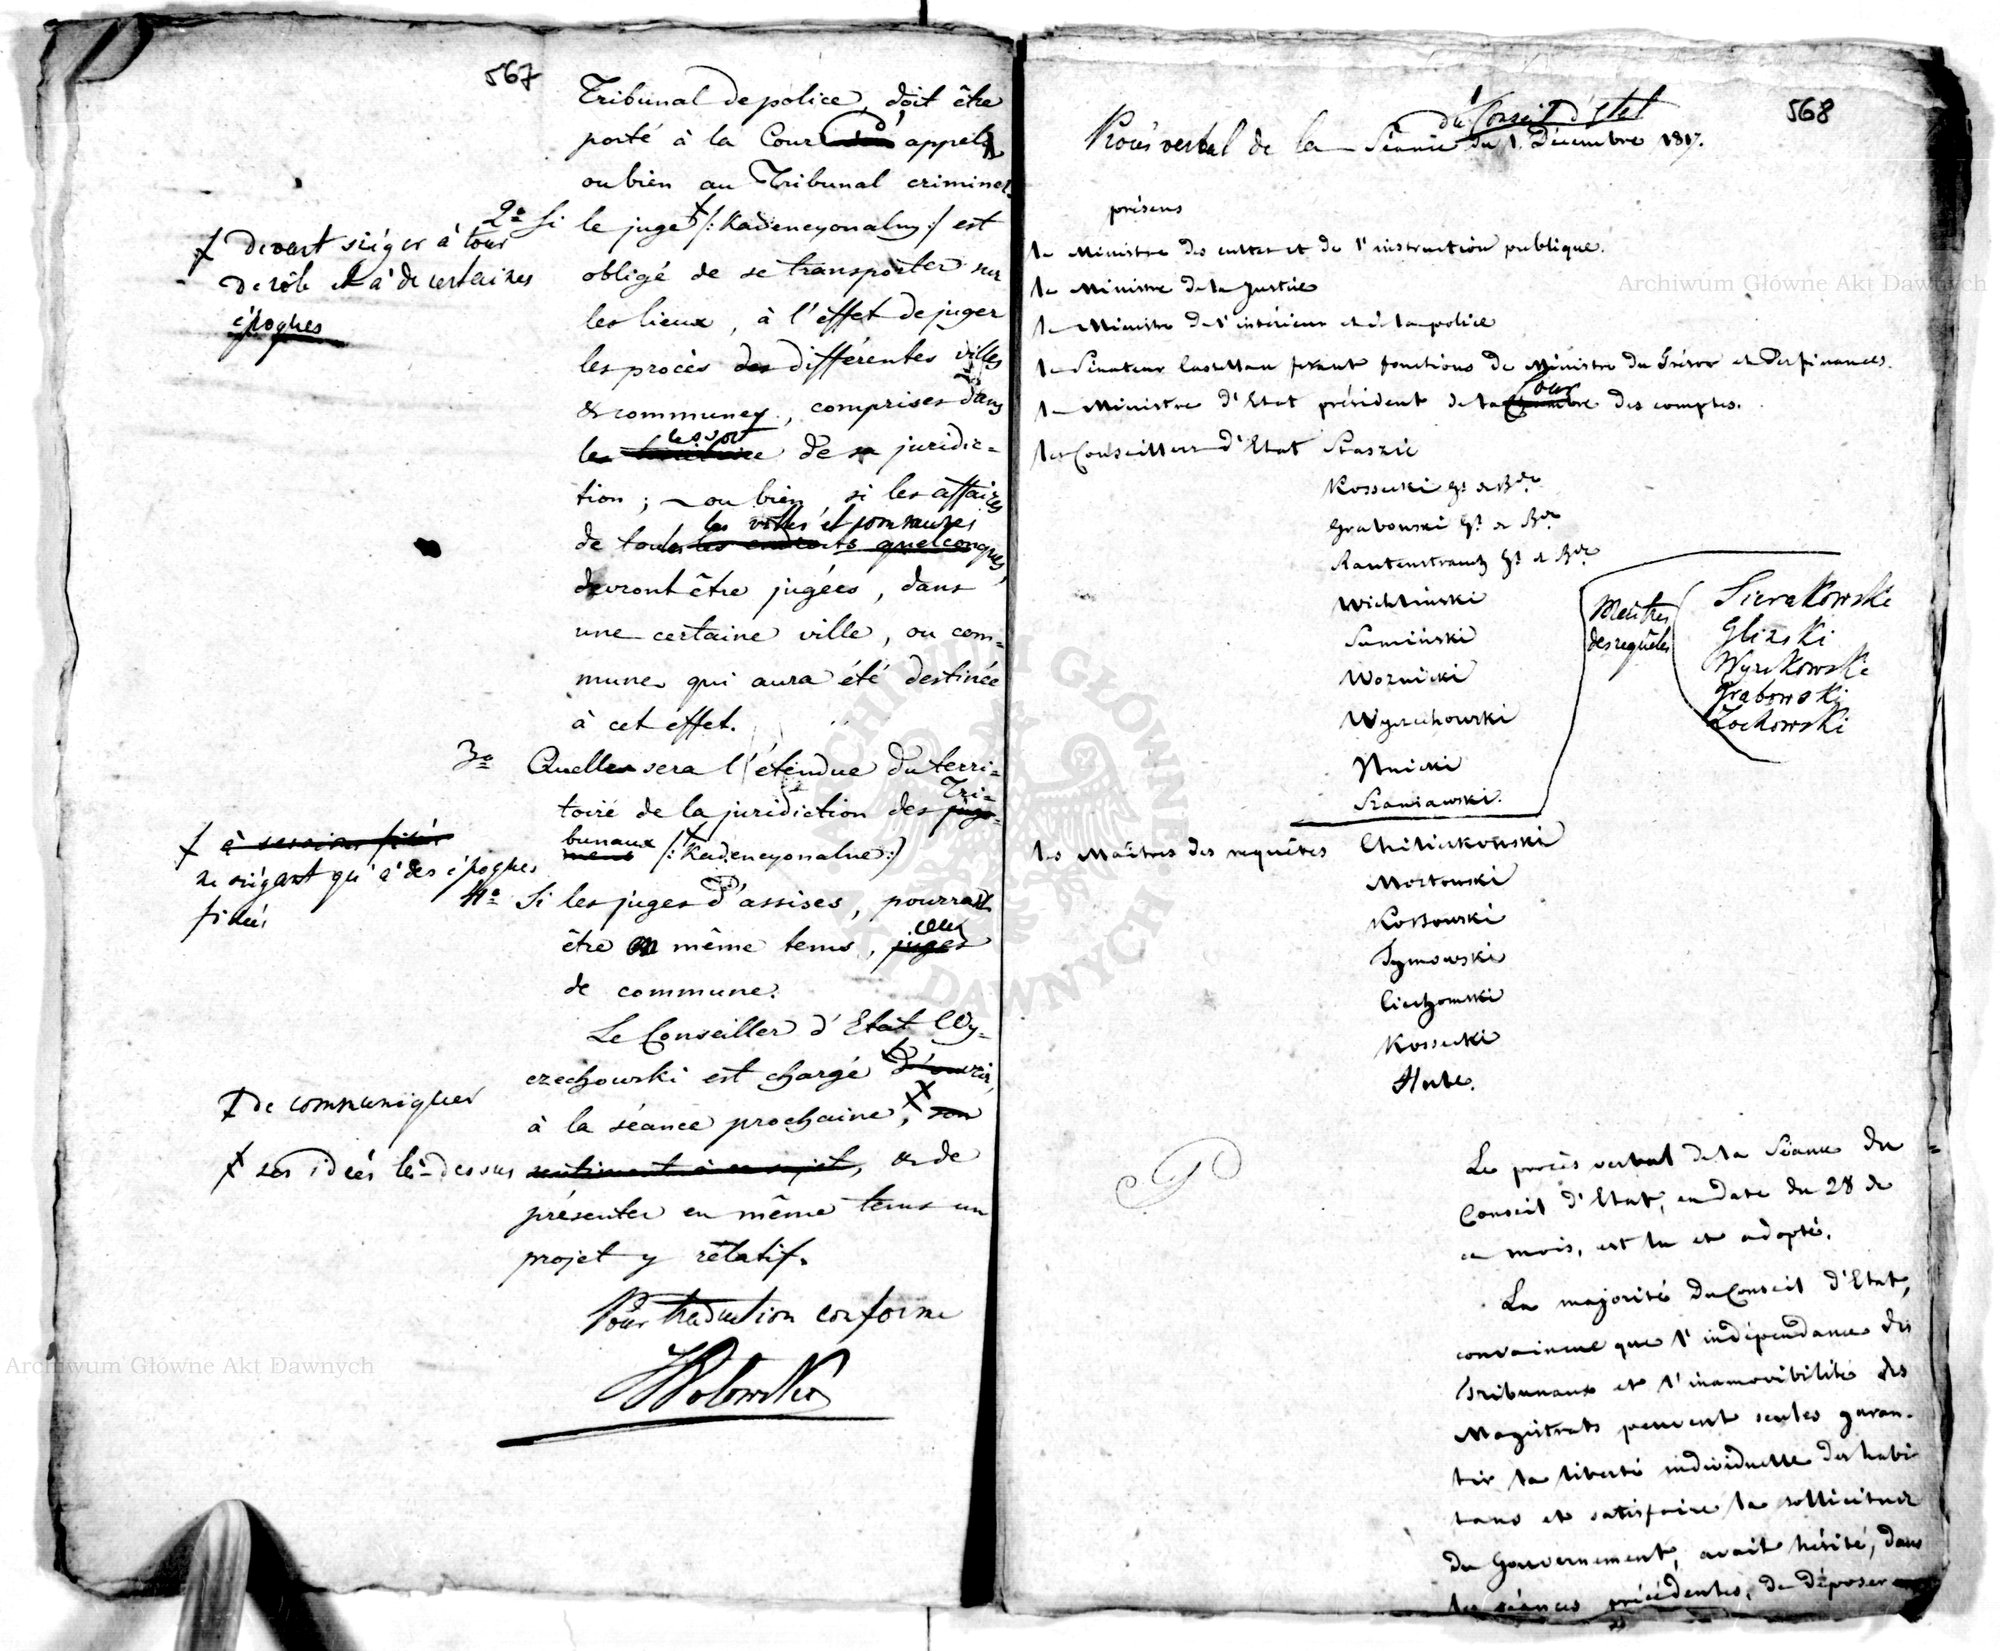 567
Tribunal de police, doit être
porté à la Cour d'appel
ou bien au Tribunal criminel
2º Si le juge /:Kadencyonalny:/ est
+ devant siéger à tour
de rôle et à de certaines
époques
obligé de se transporter sur
les lieux, à l'effet de juger
les procès des différentes villes
& communes, comprises dans
le ressort de sa juridic=
tion; ou bien, si les affaires
les villes et communes
de toutes les endroits quelconques,
devront être jugées, dans
une certaine ville, ou com=
mune qui aura été destinée
à cet effet.
3º Quelle sera l'étendue du terri=
toire de la juridiction des Tri=
bunaux /:Kadencyonalne:/
+ à sessions fixés
ne siégant qu'à des époques
fixées
4º Si les juges d'assises, pourrait
être en même tems, ceux
juges
de commune.
Le Conseiller d'Etat Wy=
czechowski est chargé d'ouvrir,
+ de communiquer
à la séance prochaine, son
+ ses idées là-dessus
sentiment à ce sujet, & de
présenter en même tems un
projet y rélatif.
Pour traduction conforme
Wolowski
568
du Conseil d'Etat
Procès verbal de la Séance du 1. Décembre 1817.
présens
le Ministre des cultes et de l'instruction publique.
le Ministre de la Justice
le Ministre de l'intérieur et de la police
le Sénateur Castellan fesant fonctions de Ministre du Trésor et des finances.
Cour
le Ministre d'Etat président de la Chambre des comptes.
les Conseillers d'Etat Staszic
Kossecki Gl de Bde
Grabowski Gl de Bde
Rautenstrauch Gl de Bde
Wichliński
Sumiński
Woznicki
Wyczechowski
Nnicki
Szaniawski.
Maîtres
des requêtes
Sierakowski
Glinski
Wyzykowski
Grabowski
Zochowski
les Maîtres des requêtes Chilichowski
Morkowski
Kossowski
Tymowski
Ciechomski
Kossecki
Hube.
Le procès verbal de la Séance du
Conseil d'Etat, en date du 28 de
ce mois, est lu et adopté.
La majorité du Conseil d'Etat,
convaincue que l'indépendance des
Tribunaux et l'inamovibilité des
Magistrats peuvent seules garan-
tir la liberté individuelle des habi
tans et satisfaire la sollicitude
du Gouvernement, avait hésité, dans
les séances précédentes, de déposer
Archiwum Główne Akt Dawnych
Archiwum Główne Akt Dawnych
ARCHIWUM GŁÓWNE AKT DAWNYCH